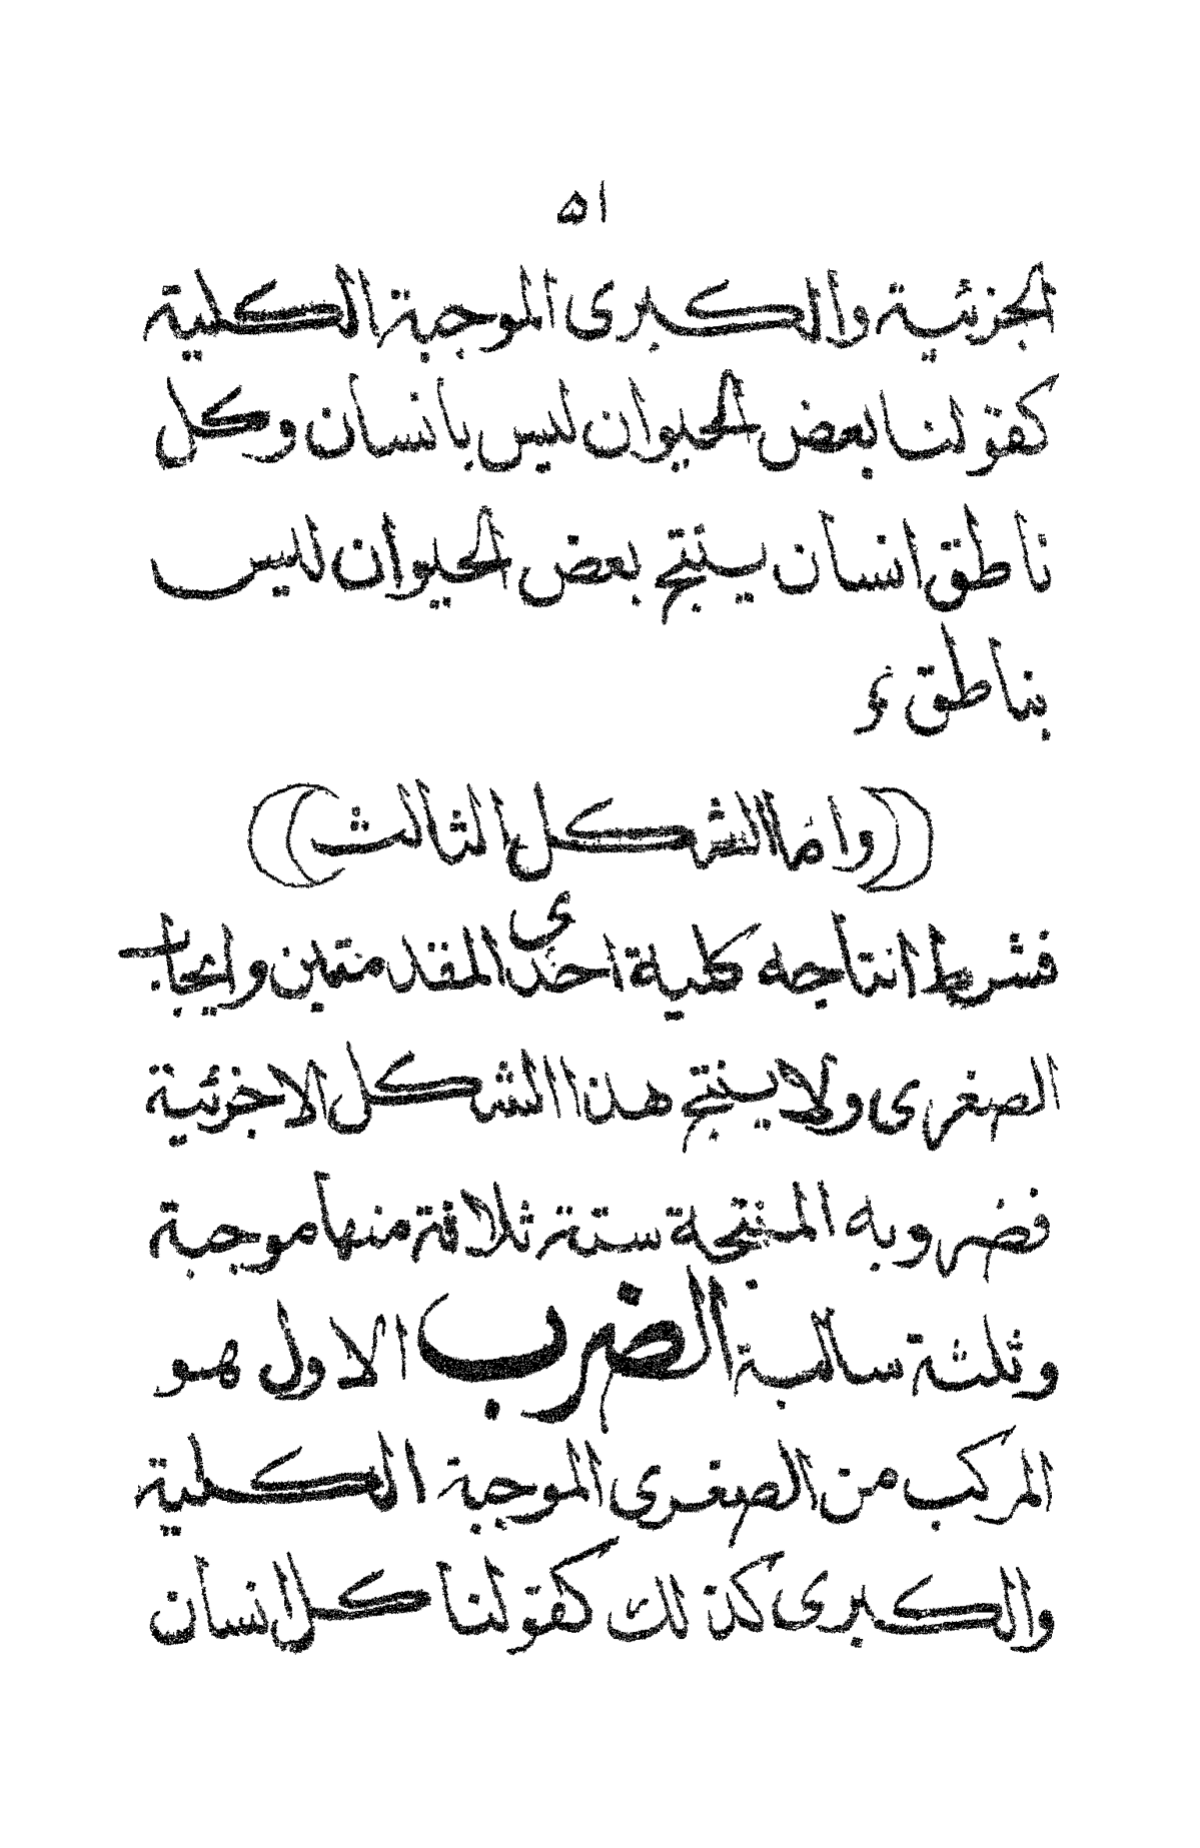 ٥١
الجزئية والكبرى الموجبة الكلية
كقولنا بعض الحيوان ليس بانسان وكل
ناطق انسان ينتج بعض الحيوان ليس
بناطق
((واما الشكل الثالث))
فشرط انتاجه كلية احدى المقدمتين وايجاب
الصغرى ولا ينتج هذا الشكل الا جزئية
فضروبه المنتجة ستة ثلاثة منها موجبة
وثلثة سالبة الضرب الاول هو
المركب من الصغرى الموجبة الكلية
والكبرى كذلك كقولنا كل انسان